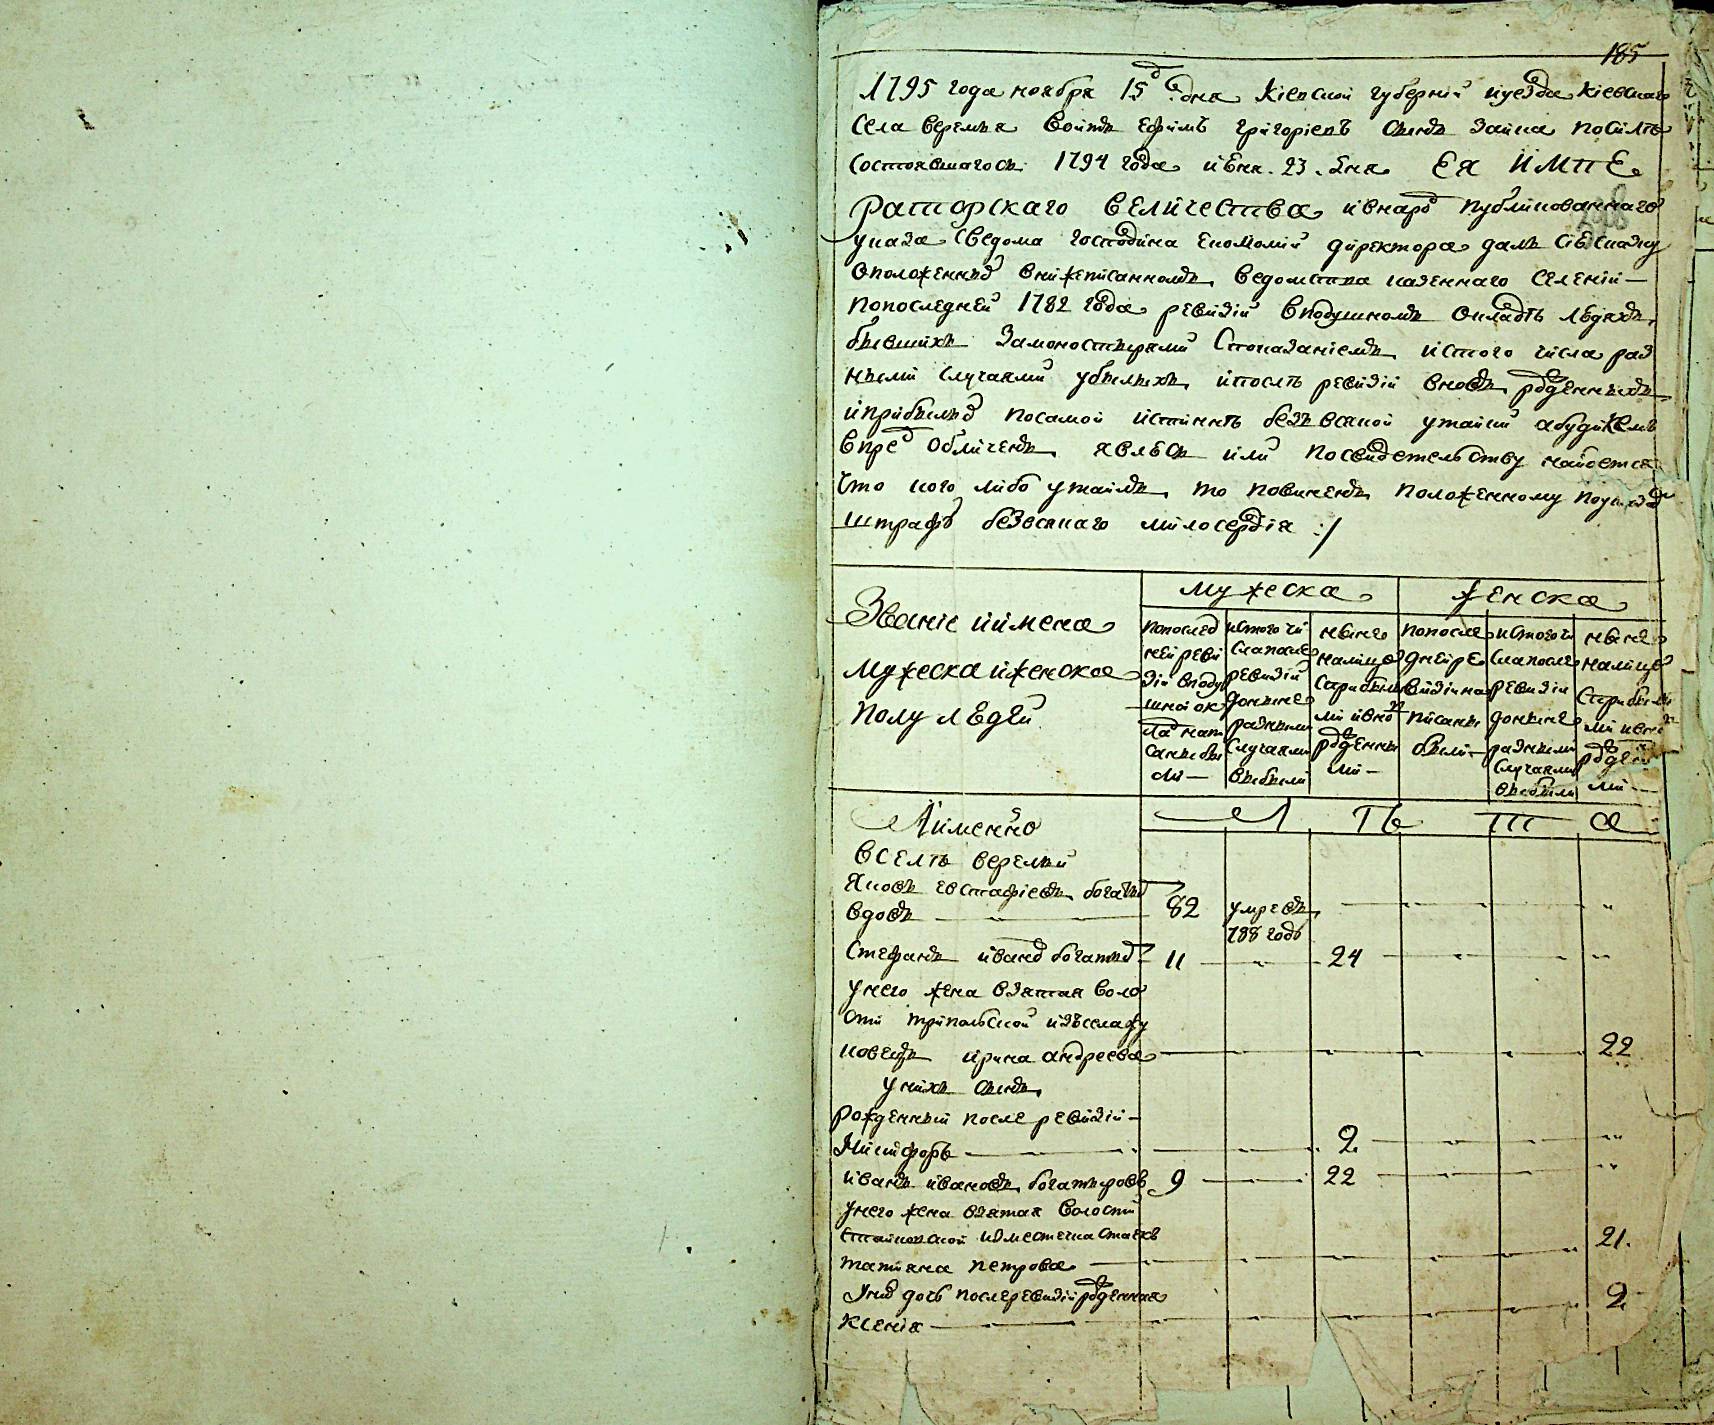 185
1795 года ноября 15д дня Кіевской губерніи и уезда Кіевскаго
села Веремья войтъ Ефимъ Григоріевъ сынъ Заика по силъ
состоявшагося 1794 года июня 23 дня ЕЯ ИМПЕ
РАТОРСКАГО ВЕЛИЧЕСТВА и внарод публикованнаго
указа сведома господина економіи директора далъ сію скаску
о положенных внижеписанномъ ведомства казеннаго селеніи —
попоследней 1782 года ревизіи вподушномъ окладъ людяхъ
бывшихъ замонастырями спогазаніемъ истого числа раз
ными случаями убылыхъ и после ревизіи вновь рожденныхъ
и прибылых посамой истиннъ безъ всякой утайки а буди кемъ
впред обличенъ явлюсь или посвидетельству найдется
что кого либо утаилъ то повиненъ положенному по указу
штрафу безвсякаго милосердія :/
Званіе и имена
мужеска и женска
полу людей
мужеска
женска
попослед
ней реви
зіи вподу
шной ок
лад напи
саны бы
ли —
истого чи
сла после
ревизіи
доныне
разными
случаями
выбыли
ныне
налицо
сприбылы
ми и вно
рожденны
ми —
попосле
дней ре
визіи на
писаны
были —
истого чи
сла после
ревизіи
доныне
разными
случаями
выбыли
ныне
налицо
сприбылы
ми и вно
рожден
ми —
А именно
Л ТЬ ТА
Вселъ Веремьи
Яковъ Евстафіевъ богатыр
вдовъ — 82 умревъ —
788 годъ
Стефанъ Иванов богатыр 11 — 24 —
унего жена взятая воло
сти Трипольской изъ села Жу
ковецъ Ирина Андреева — 22
у нихъ сынъ
рожденный после ревизіи —
Никифоръ — 2 —
Иванъ Ивановъ богатыровъ 9 — 22 —
унего жена взятая волости
Стайковской измстечка Стаекъ 21.
Татияна Петрова —
у них дочь послеревизіи рожденная 2
Ксенія —